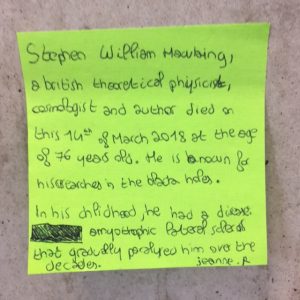 Stephen William Hawking,
a british theoretical physicist,
cosmologist and author died on
this 14th of March 2018 at the age
of 76 years old. He is known for
his researches in the black holes.
In his childhood, he had a disease
amyotrophic lateral sclerosis
that gradually paralysed him over the
decades. Jeanne. R